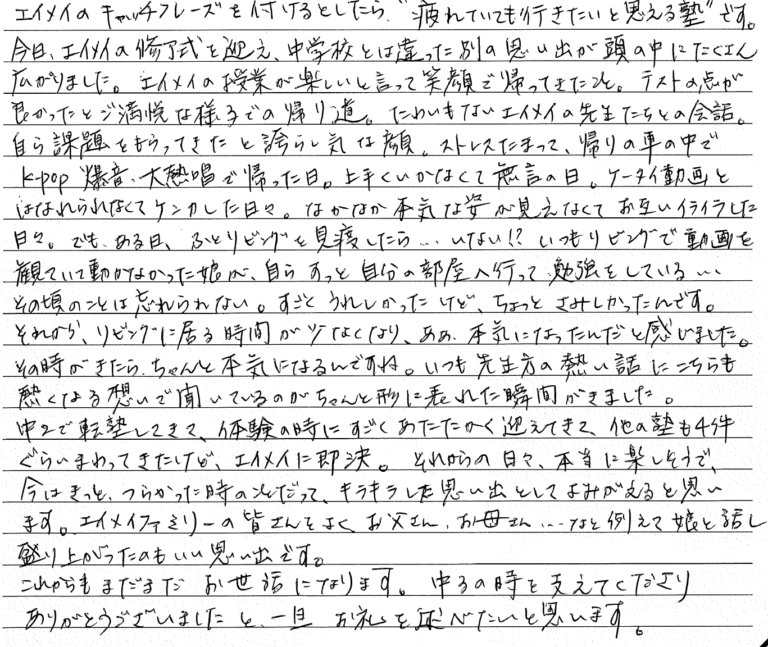 エイメイのキャッチフレーズを付けるとしたら、"疲れていても行きたいと思える塾"です。
今日、エイメイの修了式を迎え、中学校とは違った別の思い出が頭の中にたくさん
広がりました。エイメイの授業が楽しいと言って笑顔で帰ってきたこと。テストの点が
良かったとご満悦な様子での帰り道。たわいもないエイメイの先生たちとの会話。
自ら課題をもらってきたと誇らし気な顔。ストレスたまって、帰りの車の中で
K-pop 爆音、大熱唱で帰った日。上手くいかなくて無言の日。ケータイ動画と
はなれられなくてケンカした日々。なかなか本気な姿が見えなくてお互いイライラした
日々。でも、ある日、ふとリビングを見渡したら…いない!? いつもリビングで動画を
観ていて動かなかった娘が、自らすっと自分の部屋へ行って勉強をしている…
その頃のことは忘れられない。すごくうれしかったけど、ちょっとさみしかったんです。
それから、リビングに居る時間が少なくなり、ああ、本気になったんだと感じました。
その時がきたら、ちゃんと本気になるんですね。いつも先生方の熱い話にこちらも
熱くなる想いで聞いているのがちゃんと形に表れた瞬間がきました。
中2で転塾してきて、体験の時にすごくあたたかく迎えてきて、他の塾も4件
ぐらいまわってきたけど、エイメイに即決。それからの日々、本当に楽しそうで、
今はきっと、つらかった時のことだって、キラキラした思い出としてよみがえると思い
ます。エイメイファミリーの皆さんをよくお父さん、お母さん…など例えて娘と話し
盛り上がったのもいい思い出です。
これからもまだまだお世話になります。中3の時を支えてくださり
ありがとうございましたと、一旦お礼を述べたいと思います。